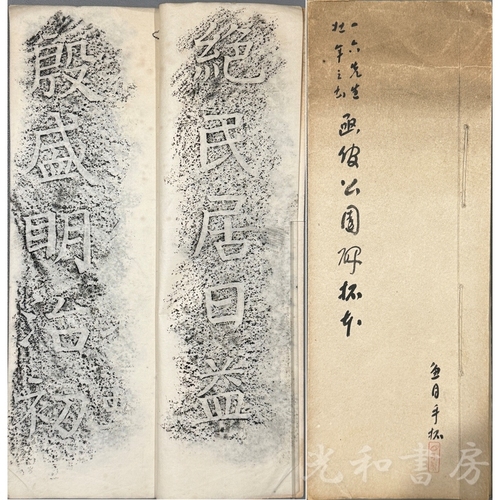 一六先生
壮年之書
函館公園碑拓本
手拓
絕民居日益
殷盛明治初
光和書房